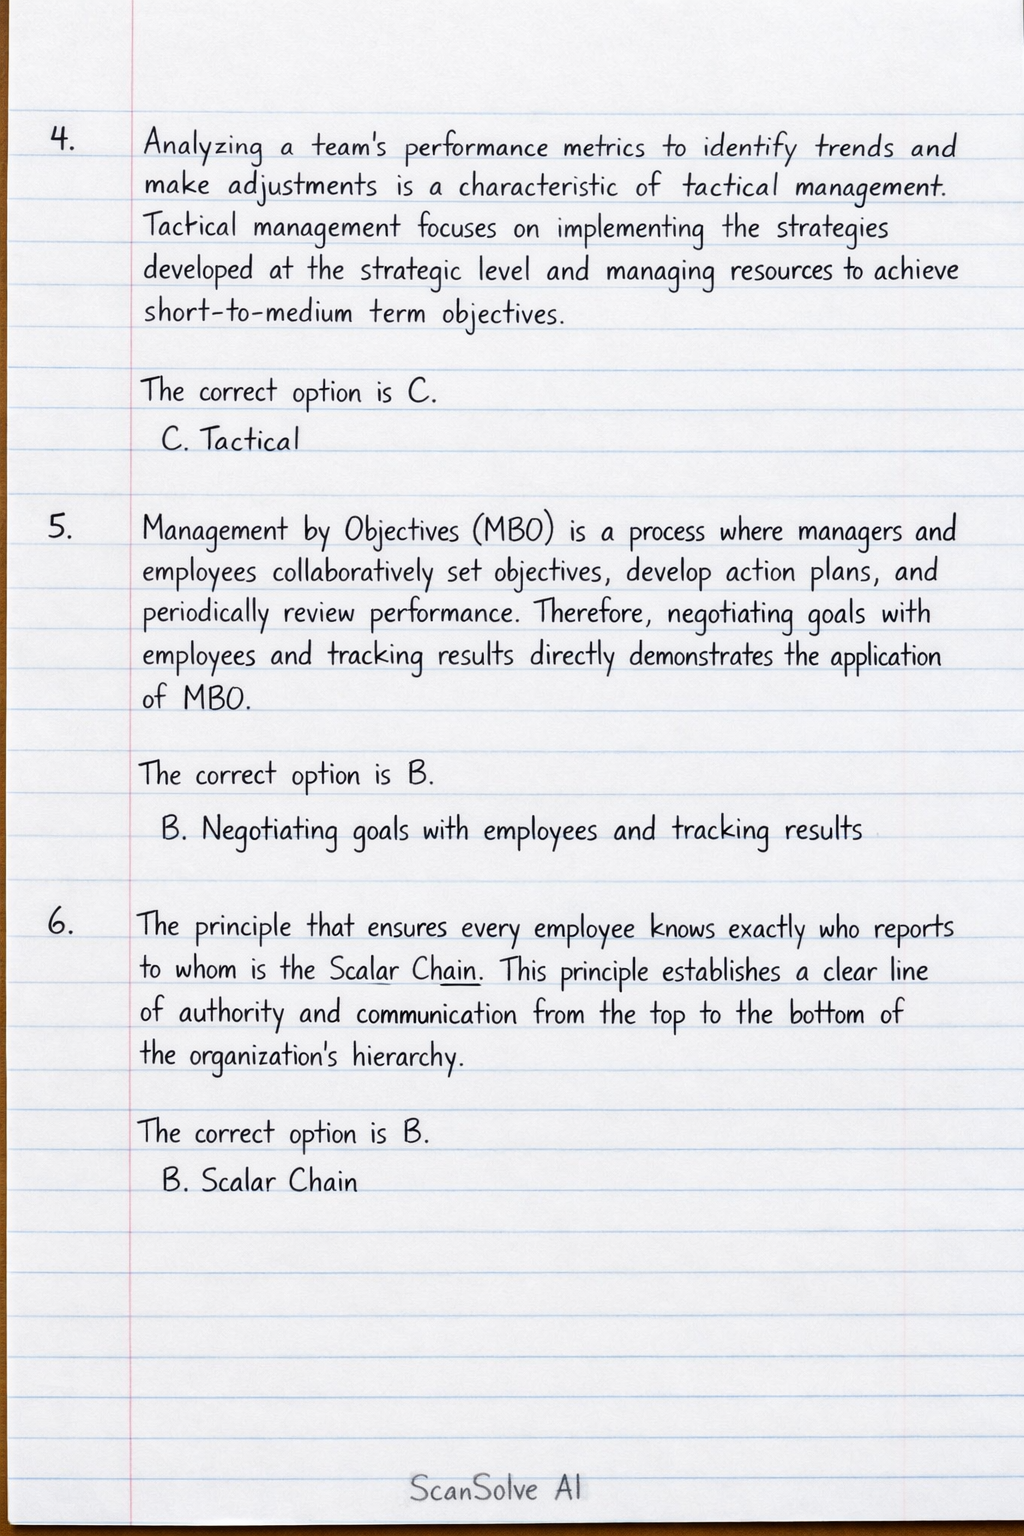 4.
Analyzing a team's performance metrics to identify trends and
make adjustments is a characteristic of tactical management.
Tactical management focuses on implementing the strategies
developed at the strategic level and managing resources to achieve
short-to-medium term objectives.
The correct option is C.
C. Tactical
5.
Management by Objectives (MBO) is a process where managers and
employees collaboratively set objectives, develop action plans, and
periodically review performance. Therefore, negotiating goals with
employees and tracking results directly demonstrates the application
of MBO.
The correct option is B.
B. Negotiating goals with employees and tracking results
6.
The principle that ensures every employee knows exactly who reports
to whom is the Scalar Chain. This principle establishes a clear line
of authority and communication from the top to the bottom of
the organization's hierarchy.
The correct option is B.
B. Scalar Chain
ScanSolve AI